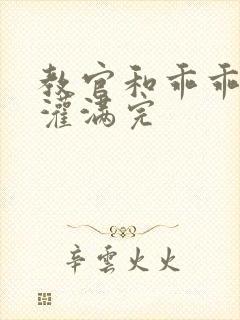 教官和乖乖
灌满完
辛雲火火